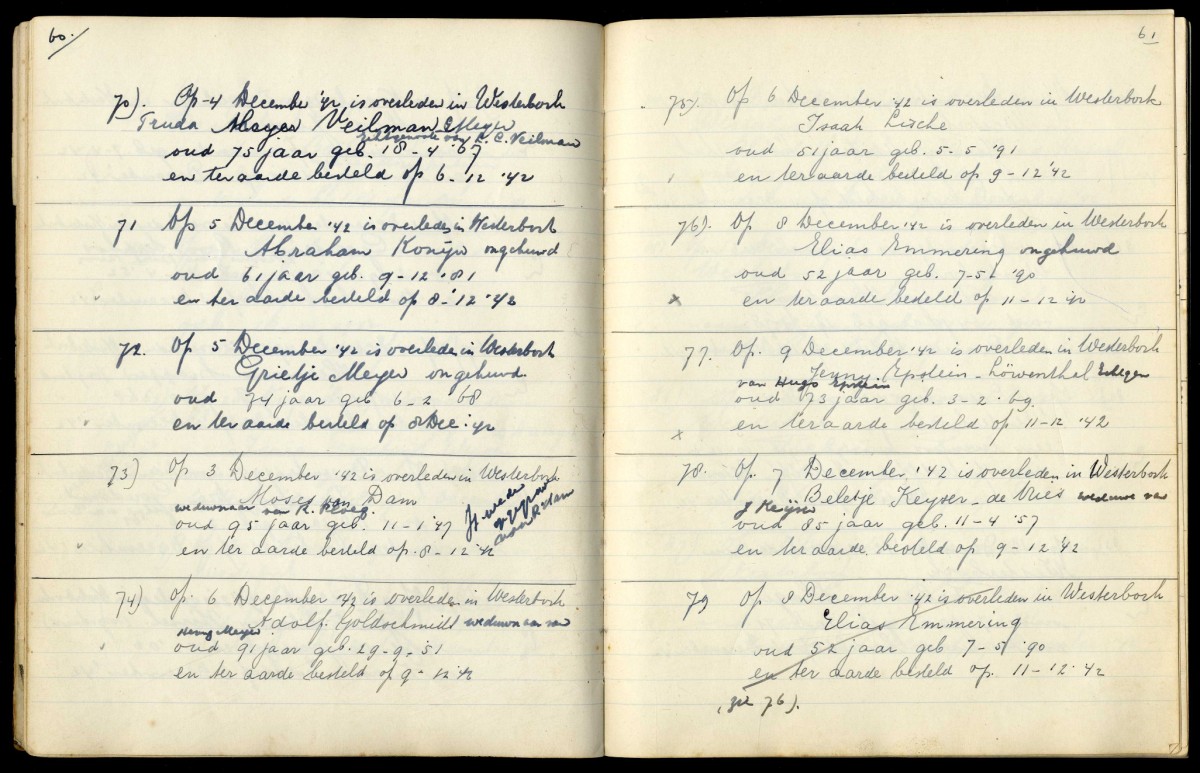 60.
70). Op 4 December '42 is overleden in Westerbork
Truda Meyer Veilman
echtgenoote van C. Veilman
oud 75 jaar geb. 18-4 '67
en ter aarde besteld op 6-12 '42
71 Op 5 December '42 is overleden in Westerbork
Abraham Konijn ongehuwd
oud 61 jaar geb. 9-12 '81
en ter aarde besteld op 8-12 '42
72. Op 5 December '42 is overleden in Westerbork
Grietje Meyer ongehuwd
oud 74 jaar geb 6-2 68
en ter aarde besteld op 8 Dec. '42
73) Op 3 December '42 is overleden in Westerbork
Moses van Dam
weduwnaar van R.
oud 95 jaar geb. 11-1 '47
en ter aarde besteld op 8-12 '42
74) Op 6 December '42 is overleden in Westerbork
Adolf Goldschmidt weduwnaar van
Henny Meyer
oud 91 jaar geb. 29-9-51
en ter aarde besteld op 9-12 '42
61
75). Op 6 December '42 is overleden in Westerbork
Isaak
oud 51 jaar geb. 5-5 '91
en ter aarde besteld op 9-12 '42
76). Op 8 December '42 is overleden in Westerbork
Elias Emmering ongehuwd
oud 52 jaar geb. 7-5 '90
x en ter aarde besteld op 11-12 '42
77. Op 9 December '42 is overleden in Westerbork
Jenny Epstein-Löwenthal
van Hugo Epstein
oud 73 jaar geb. 3-2-69.
x en ter aarde besteld op 11-12 '42
78. Op 7 December '42 is overleden in Westerbork
Beletje Keyser-de Vries weduwe van
J Keijser
oud 85 jaar geb. 11-4 '57
en ter aarde besteld op 9-12 '42
79 Op 8 December '42 is overleden in Westerbork
Elias Emmering
oud 52 jaar geb 7-5 '90
en ter aarde besteld op 11-12-42
(zie 76).